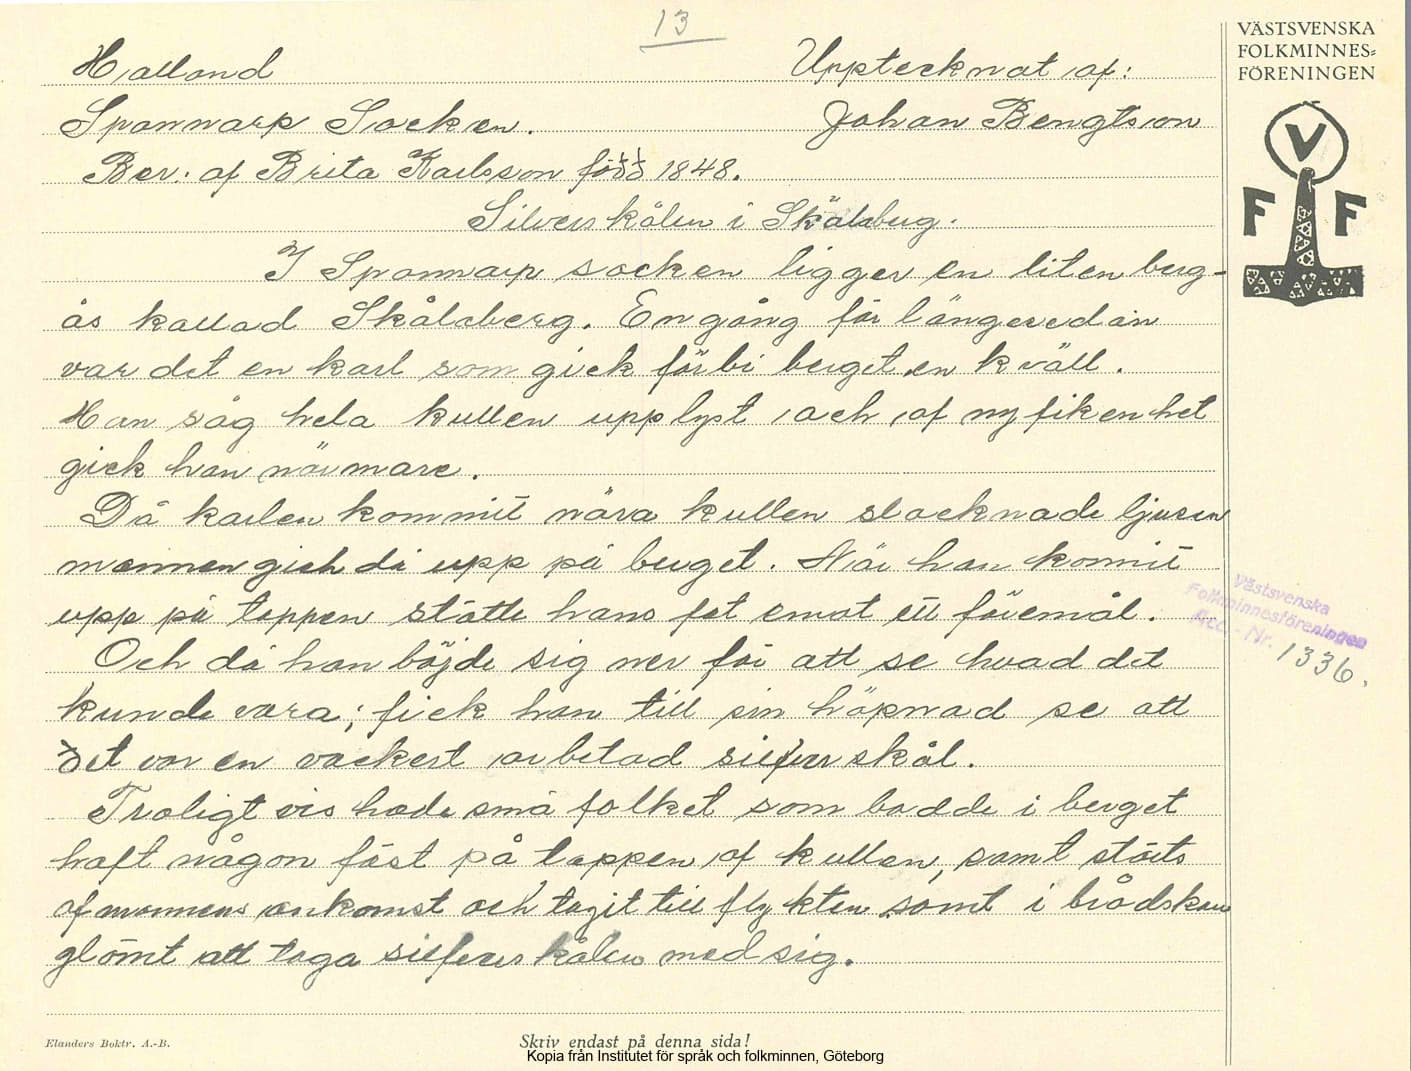 13
Halland
Upptecknat af:
VÄSTSVENSKA
FOLKMINNES=
FÖRENINGEN
Spannarp Socken.
Johan Bengtsson
Ber. af Brita Karlsson född 1848.
V
F F
Silverskålen i Skålsberg.
I Spannarp socken ligger en liten berg-
ås kallad Skålsberg. En gång för längesedan
var det en karl som gick förbi berget en kväll.
Han såg hela kullen upplyst, och af nyfikenhet
gick han närmare.
Då karlen kommit nära kullen slocknade ljusen
mannen gick då upp på berget. När han kommit
upp på toppen stötte hans fot emot ett föremål.
Och då han böjde sig ner för att se hvad det
kunde vara; fick han till sin häpnad se att
det var en vackert arbetad silfverskål.
Troligtvis hade små folket som bodde i berget
haft någon fäst på toppen af kullen, samt störts
af mannens ankomst och tagit till flykten samt i brådskan
glömt att taga silfverskålen med sig.
Västsvenska
Folkminnesföreningen
Acc. - Nr. 1336.
Elanders Boktr. A.-B.
Skriv endast på denna sida!
Kopia från Institutet för språk och folkminnen, Göteborg